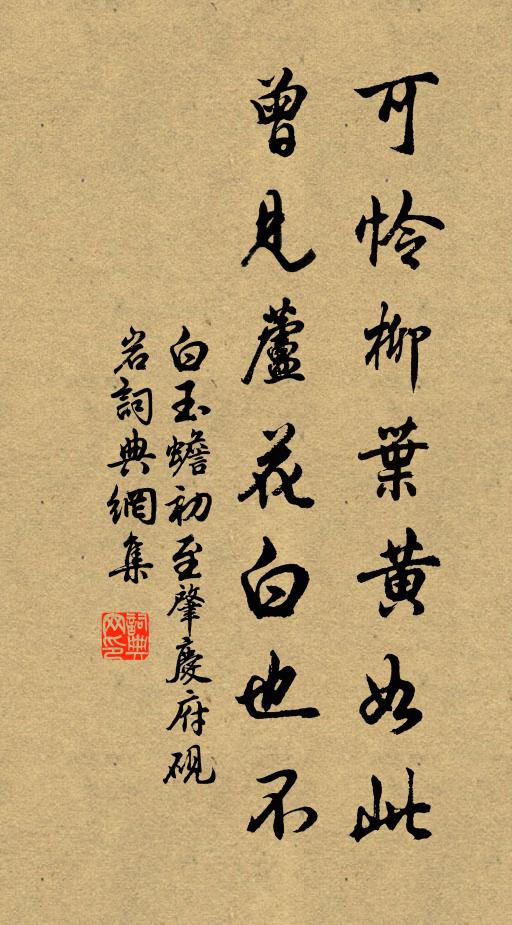 可怜柳葉黄如此
曾見蘆花白也不
白玉蟾初至肇慶府硯
岩詞典網集
詞典
网印